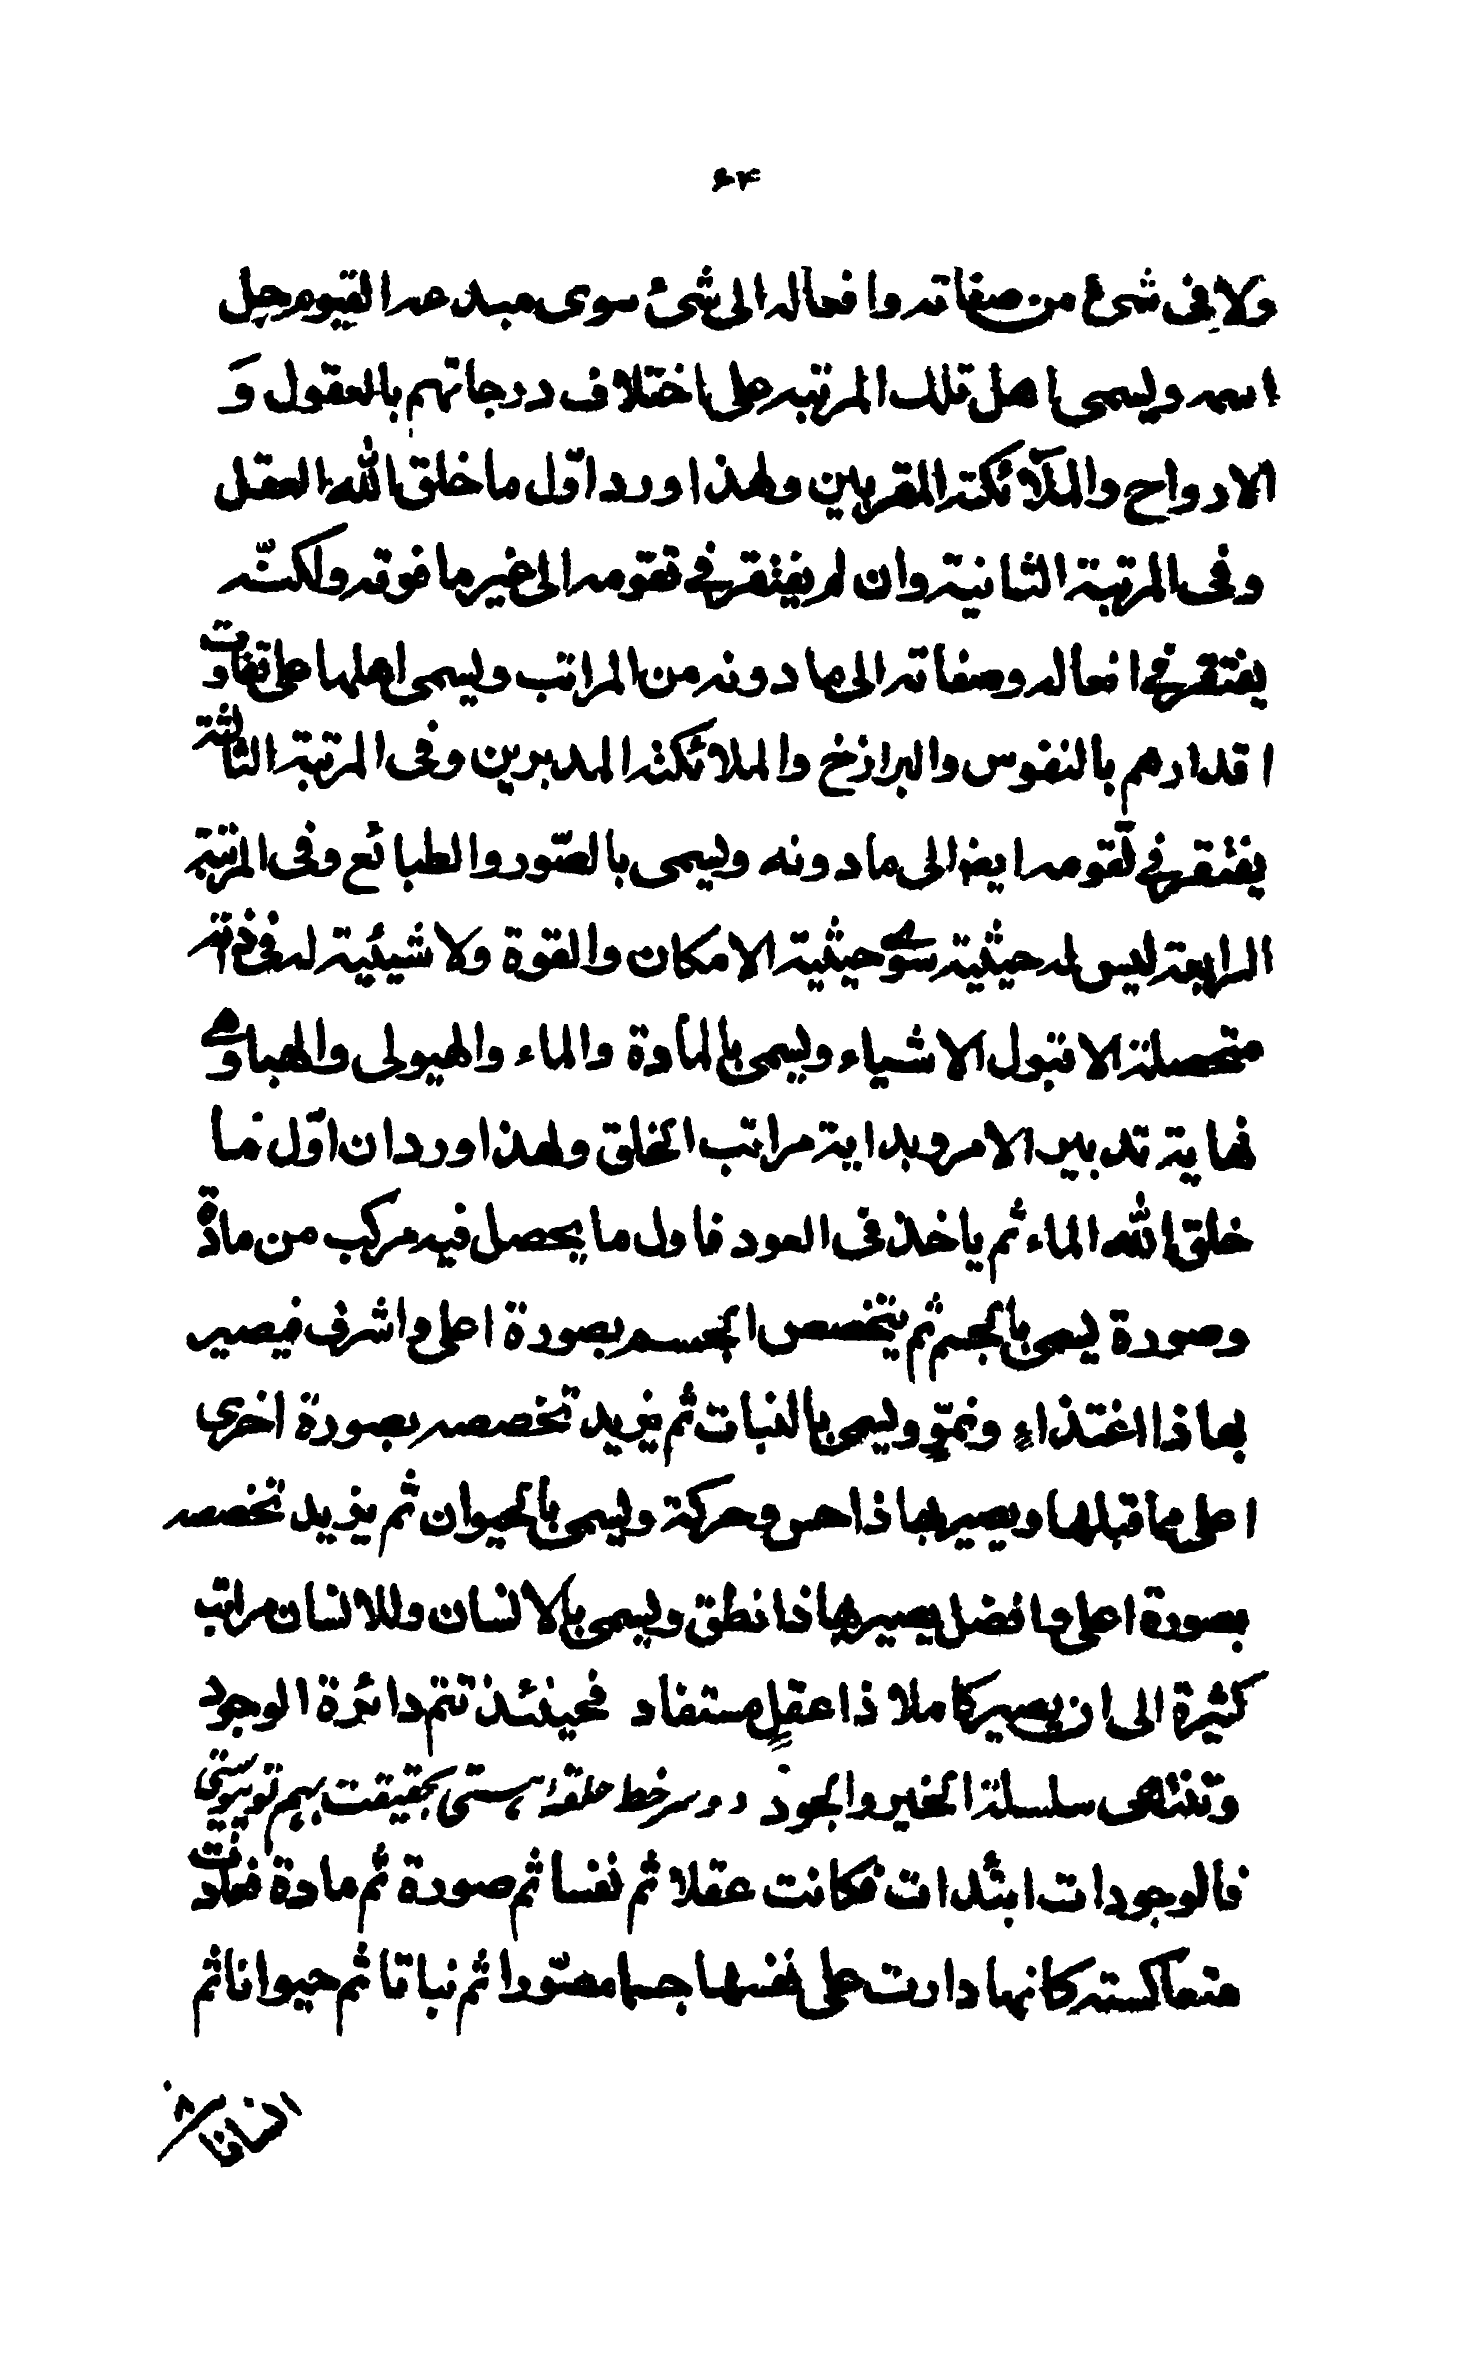 ۶۴
ولا فى شئ من صفاته وافعاله الى شئ سوى مبدعه القيوم جل
اسمه ويسمى اهل تلك المرتبه على اختلاف درجاتهم بالعقول و
الارواح والملآئكته المقربين ولهذا ورد اوّل ما خلق الله العقل
وفى المرتبة الثانية وان لم يفتقر فى تقومه الى غير ما فوقه ولكنّه
يفتقر فى افعاله وصفاته الى ما دونه من المراتب ويسمى اهلها على تفاوت
اقدارهم بالنفوس والبرازخ والملائكة المدبرين وفى المرتبة الثالثة
يفتقر فى تقومه ايضا الى ما دونه ويسمى بالصّور والطبائع وفى المرتبة
الرابعة ليس له حيثية سوى حيثية الامكان والقوة ولا شيئية له فى ذاته
متحصلة الا قبول الاشياء ويسمى بالمادة والماء والهيولى والهباء وهى
نهاية تدبير الامر وبداية مراتب الخلق ولهذا ورد ان اوّل ما
خلق الله الماء ثم ياخذ فى العود فاول ما يحصل فيه مركب من مادّة
وصورة يسمى بالجسم ثم يتخصص الجسم بصورة اعلى واشرف فيصير
بها ذا اغتذاءٍ ونموٍّ ويسمى بالنبات ثم يزيد تخصصه بصورة اخرى
اعلى مما قبلها ويصير بها ذا حس وحركة ويسمى بالحيوان ثم يزيد تخصصه
بصورة اعلى وافضل يصير بها ذا نطق ويسمى بالانسان وللانسان مراتب
كثيرة الى ان يصير كاملا ذا عقلٍ مستفاد فحينئذ تتم دائرة الوجود
وتنتهى سلسلة الخير والجود دو سر خط حلقهٔ هستى بحقيقت بهم تو پيوستى
فالوجودات ابتدات فكانت عقلا ثم نفسا ثم صورة ثم مادة فعادت
متعاكسته كانها دارت على نفسها جسما مصوّرا ثم نباتا ثم حيوانا ثم
انسانا